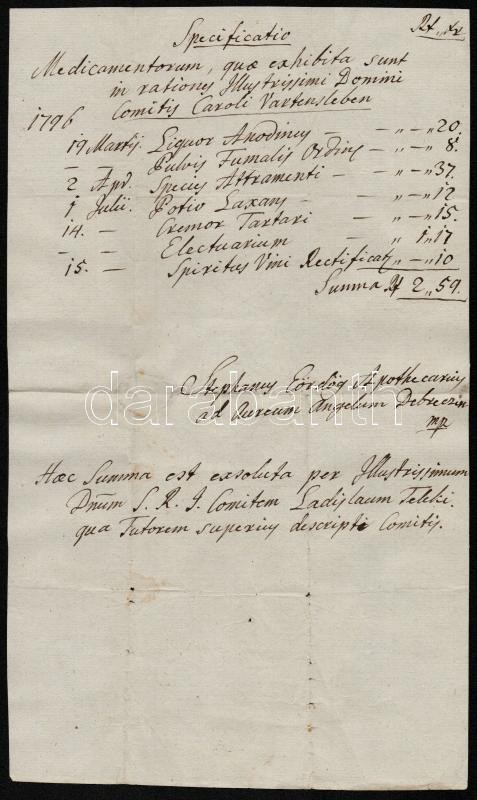 Specificatio
Rf „ xr
Medicamentorum, quæ exhibita sunt
in rationes Illustrissimi Domini
Comitis Caroli Vartensleben
1796
19 Martij. Liquor Anodinus — — „ — „ 20.
— — Pulvis Fumalis Ordius — „ — „ 8.
2 Apr. Species Attramenti — — „ — „ 37.
1 Julii. Potio Laxans — — „ — „ 12
14. — Cremor Tartari — — „ — „ 15.
— — Electuarium „ 1 „ 17
15. — Spiritus Vini Rectificati „ — „ 10
Summa Rf 2 „ 59.
Stephanus Eördög Apothecarius
ad Aureum Angelum Debreczin
mp
darabanth
Hæc Summa est exsoluta per Illustrissimum
Dnūm S. R. I. Comitem Ladislaum Teleki.
qua Tutorem superius descripti Comitis.